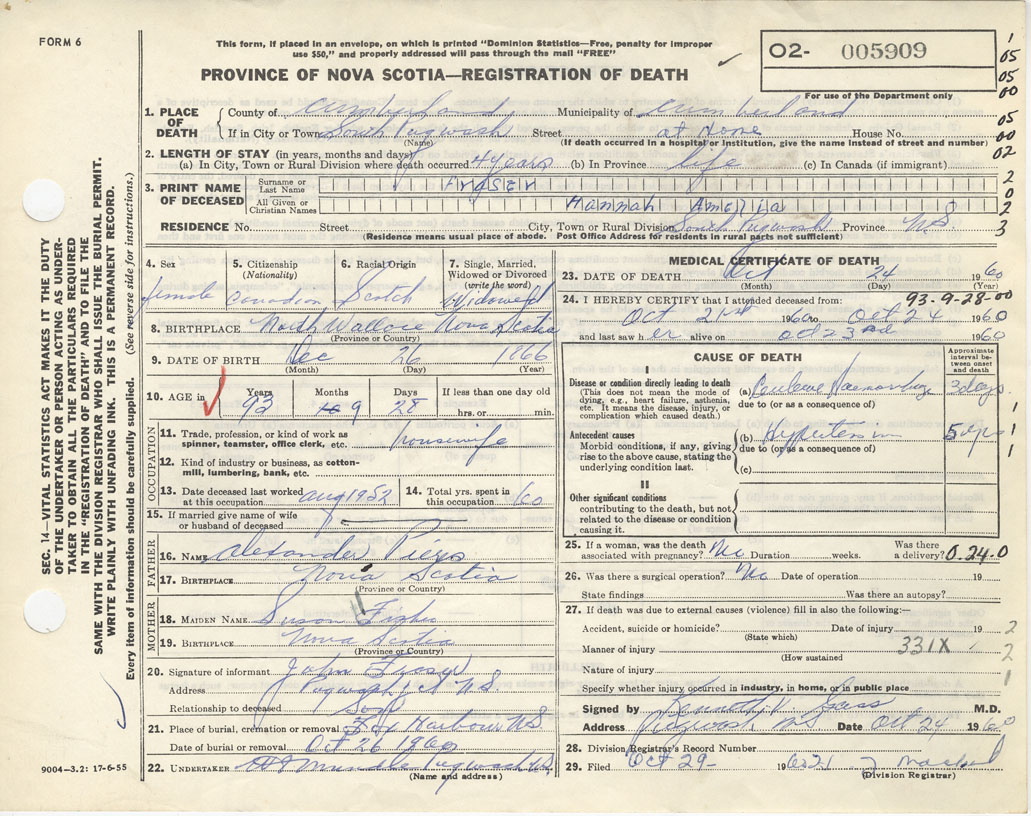 FORM 6
This form, if placed in an envelope, on which is printed "Dominion Statistics—Free, penalty for improper
use $50," and properly addressed will pass through the mail "FREE"
PROVINCE OF NOVA SCOTIA—REGISTRATION OF DEATH
O2- 005909
For use of the Department only
1
05
05
00
05
00
02
2
0
2
3
1. PLACE OF DEATH
County of Cumberland Municipality of Cumberland
If in City or Town South Pugwash Street at Home House No.
(Name) (If death occurred in a hospital or Institution, give the name instead of street and number)
2. LENGTH OF STAY (in years, months and days)
(a) In City, Town or Rural Division where death occurred 4 years (b) In Province life (c) In Canada (if immigrant)
3. PRINT NAME OF DECEASED
Surname or Last Name Fraser
All Given or Christian Names Hannah Amelia
RESIDENCE No. Street City, Town or Rural Division South Pugwash Province N.S.
(Residence means usual place of abode. Post Office Address for residents in rural parts not sufficient)
SEC. 14—VITAL STATISTICS ACT MAKES IT THE DUTY
OF THE UNDERTAKER OR PERSON ACTING AS UNDER-
TAKER TO OBTAIN ALL THE PARTICULARS REQUIRED
IN THE "REGISTRATION OF DEATH" AND TO FILE THE
SAME WITH THE DIVISION REGISTRAR WHO SHALL ISSUE THE BURIAL PERMIT.
WRITE PLAINLY WITH UNFADING INK. THIS IS A PERMANENT RECORD.
Every item of information should be carefully supplied. (See reverse side for instructions.)
4. Sex
female
5. Citizenship
(Nationality)
Canadian
6. Racial Origin
Scotch
7. Single, Married,
Widowed or Divorced
(write the word)
Widowed
8. BIRTHPLACE North Wallace Nova Scotia
(Province or Country)
9. DATE OF BIRTH Dec 26 1866
(Month) (Day) (Year)
10. AGE in
Years Months Days If less than one day old
93 9 28 hrs. or min.
OCCUPATION
11. Trade, profession, or kind of work as
spinner, teamster, office clerk, etc. housewife
12. Kind of industry or business, as cotton-
mill, lumbering, bank, etc.
13. Date deceased last worked
at this occupation Aug 1952
14. Total yrs. spent in
this occupation 60
15. If married give name of wife
or husband of deceased
FATHER
16. NAME Alexander
17. BIRTHPLACE Nova Scotia
(Province or Country)
MOTHER
18. MAIDEN NAME Susan
19. BIRTHPLACE Nova Scotia
(Province or Country)
20. Signature of informant John Fraser
Address Pugwash N.S.
Relationship to deceased Son
21. Place of burial, cremation or removal Fox Harbour N.S.
Date of burial or removal Oct 26 1960
22. UNDERTAKER Pugwash N.S.
(Name and address)
9004—3.2: 17-6-55
MEDICAL CERTIFICATE OF DEATH
23. DATE OF DEATH Oct 24 1960
(Month) (Day) (Year)
24. I HEREBY CERTIFY that I attended deceased from: 93-9-28-00
Oct 21st 1960 to Oct 24 1960
and last saw her alive on Oct 23rd 1960
CAUSE OF DEATH
Approximate
interval be-
tween onset
and death
I
Disease or condition directly leading to death
(This does not mean the mode of
dying, e.g., heart failure, asthenia,
etc. It means the disease, injury, or
complication which caused death.)
(a) Haemorrhage 3 days
due to (or as a consequence of)
Antecedent causes
Morbid conditions, if any, giving
rise to the above cause, stating the
underlying condition last.
(b) Hypertension 5 yrs
due to (or as a consequence of)
(c)
1
1
1
II
Other significant conditions
contributing to the death, but not
related to the disease or condition
causing it.
25. If a woman, was the death
associated with pregnancy? No Duration weeks. Was there
a delivery? 0.24.0
26. Was there a surgical operation? No Date of operation 19
State findings Was there an autopsy?
27. If death was due to external causes (violence) fill in also the following:—
Accident, suicide or homicide? Date of injury 19 2
(State which)
Manner of injury 331X 2
(How sustained
Nature of injury 1
Specify whether injury occurred in industry, in home, or in public place
Signed by Kenneth M.D.
Address Pugwash N.S. Date Oct 24 1960
28. Division Registrar's Record Number
29. Filed Oct 29- 19
(Division Registrar)